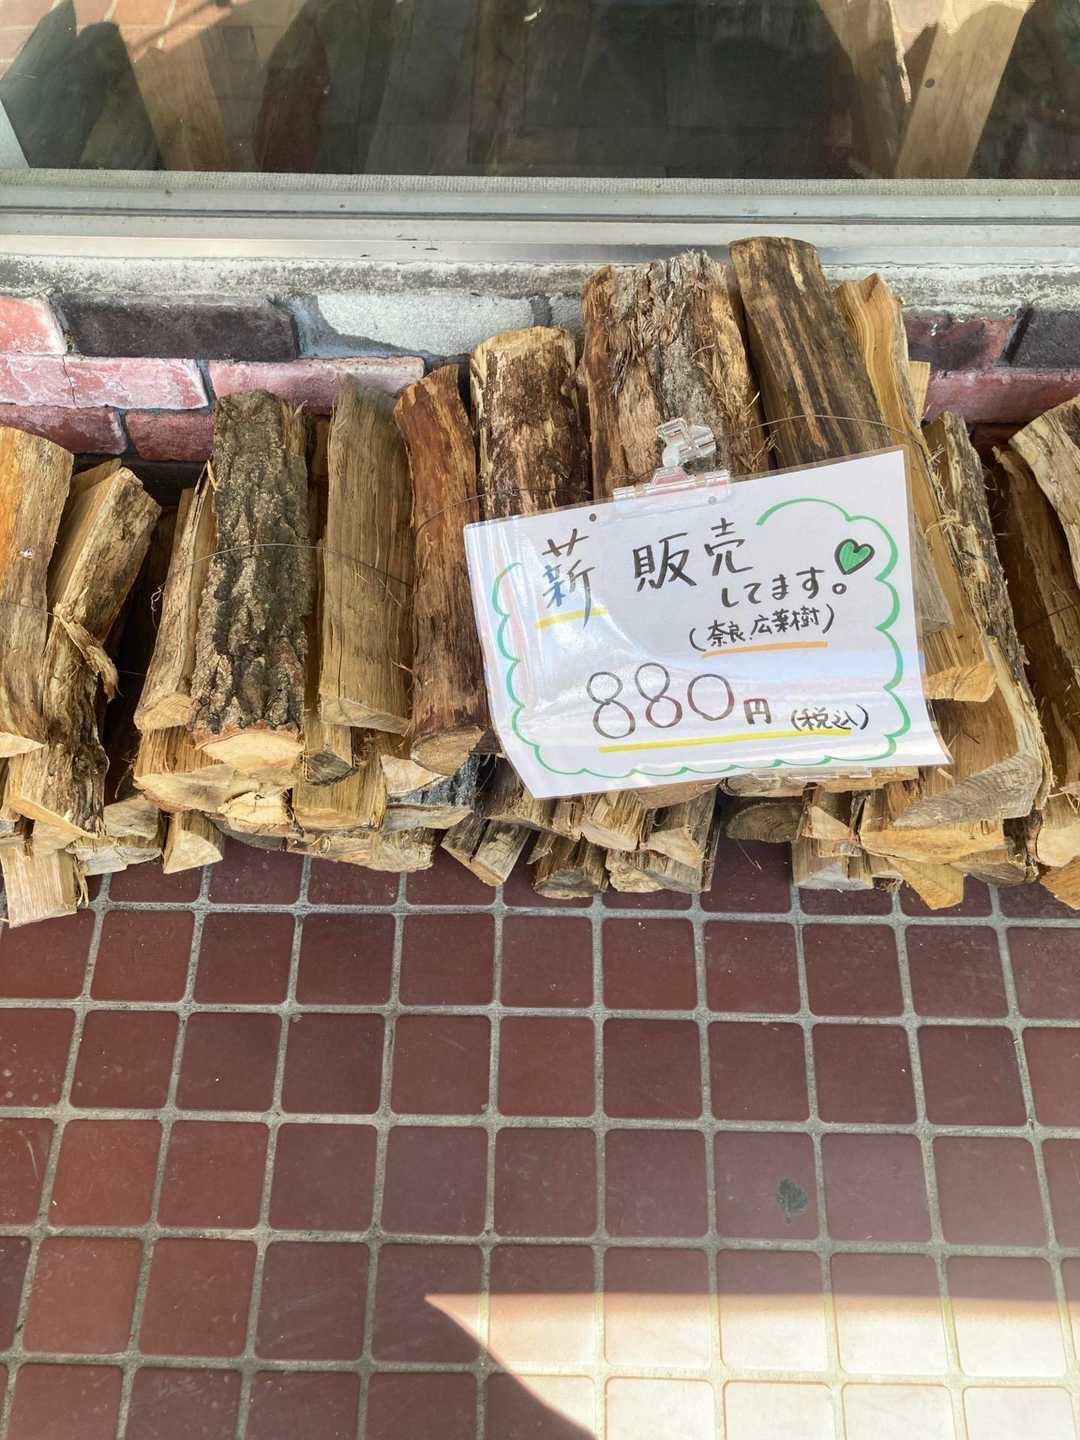 薪 販売
してます。
(奈良、広葉樹)
880円 (税込)